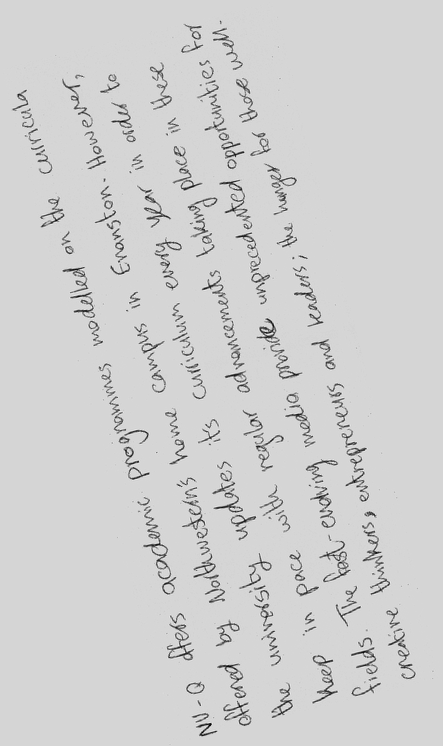 NU-Q offers academic programmes modelled on the curricula
offered by Northwestern's home campus in Evanston. However,
the university updates its curriculum every year in order to
keep in pace with regular advancements taking place in these
fields. The fast-evolving media provide unprecedented opportunities for
creative thinkers, entrepreneurs and leaders; the hunger for those well-